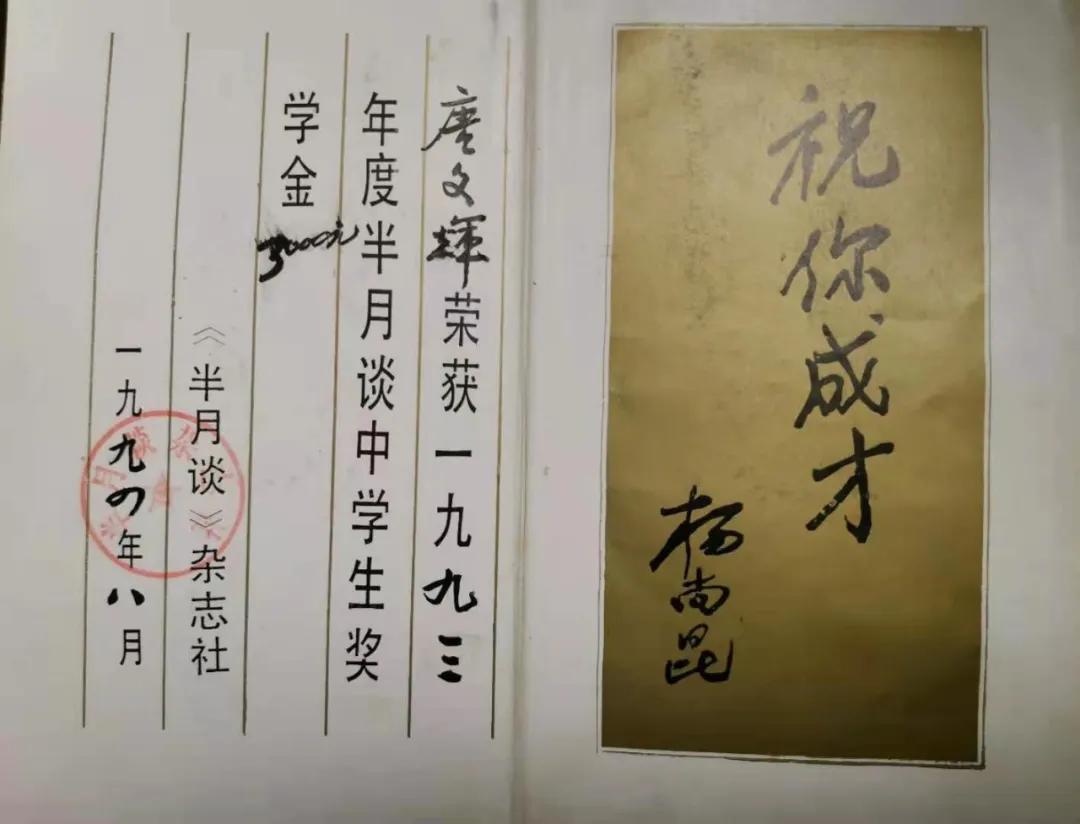 祝你成才
杨尚昆
唐文辉荣获一九九三
年度半月谈中学生奖
学金3000元
《半月谈》杂志社
一九九四年八月